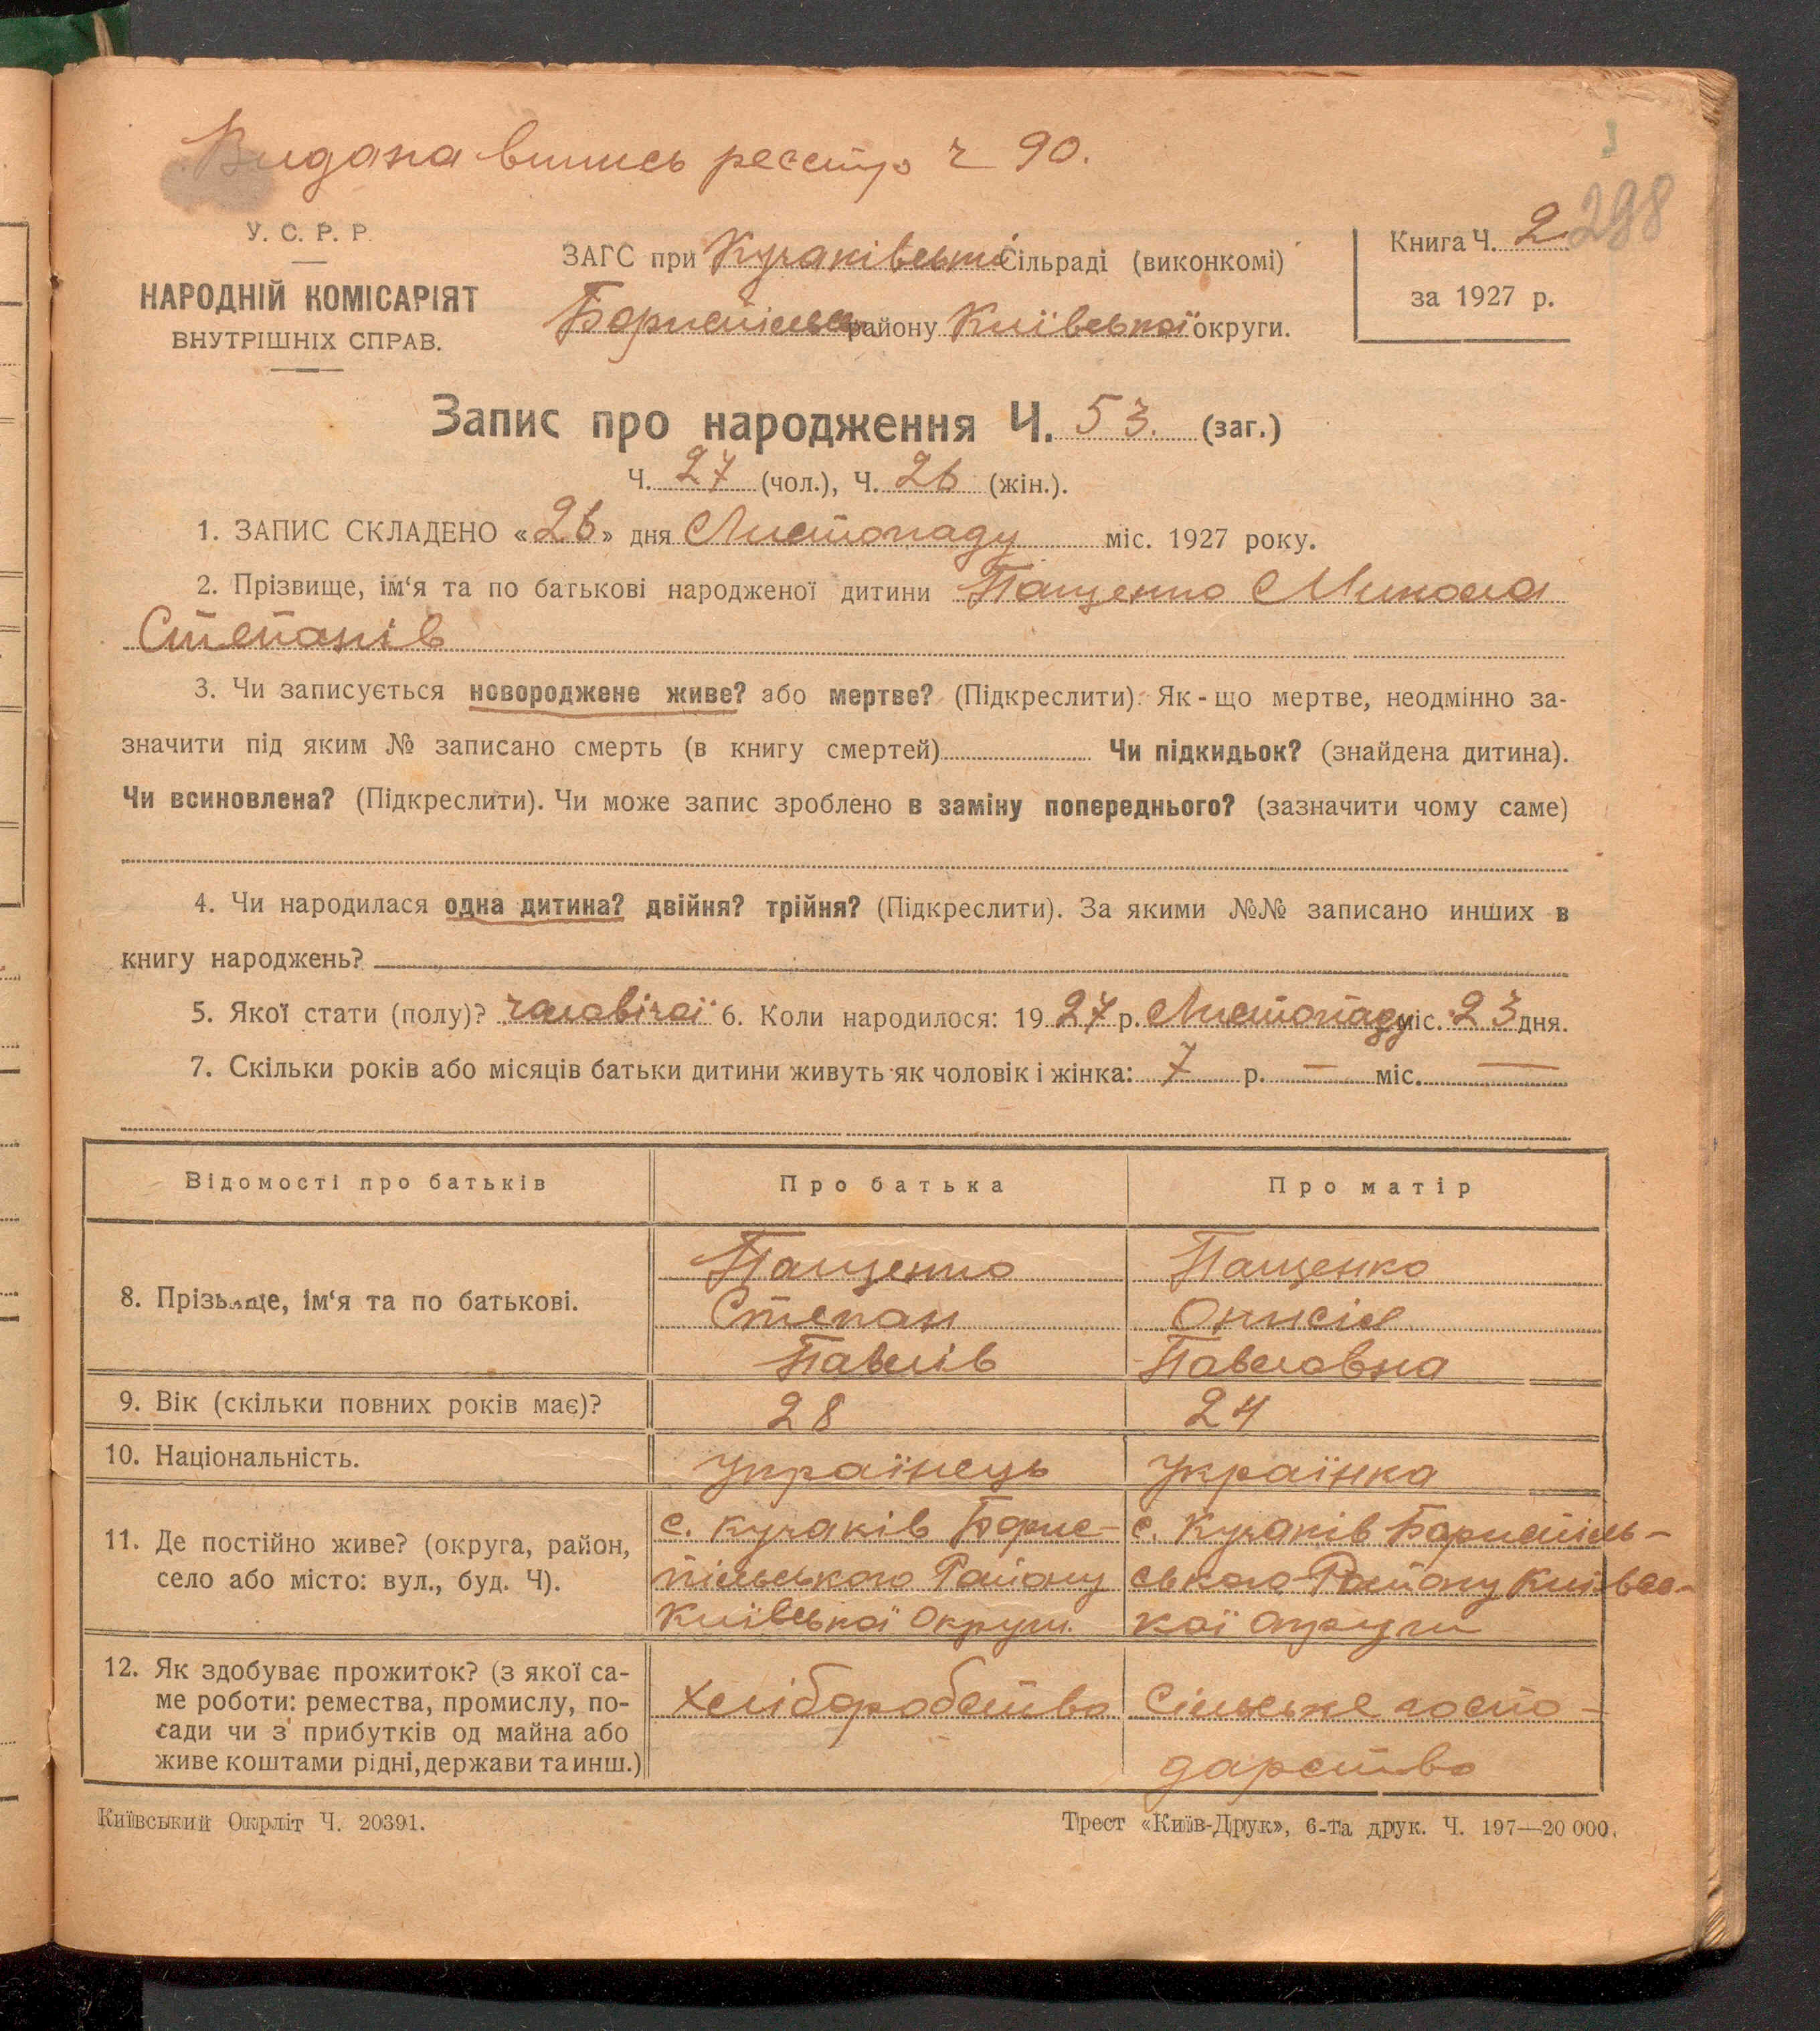 Видана випись реєстр ч 90.
298
У. С. Р. Р.
НАРОДНІЙ КОМІСАРІЯТ
ВНУТРІШНІХ СПРАВ.
ЗАГС при Кучаківській Сільраді (виконкомі)
Бориспільськ району Київської округи.
Книга Ч. 2
за 1927 р.
Запис про народження Ч. 53. (заг.)
Ч. 27 (чол.), Ч. 26 (жін.).
1. ЗАПИС СКЛАДЕНО «26» дня Листопаду міс. 1927 року.
2. Прізвище, ім‘я та по батькові народженої дитини Пащенко Микола
Степанів
3. Чи записується новороджене живе? або мертве? (Підкреслити). Як-що мертве, неодмінно за-
значити під яким № записано смерть (в книгу смертей) Чи підкидьок? (знайдена дитина).
Чи всиновлена? (Підкреслити). Чи може запис зроблено в заміну попереднього? (зазначити чому саме)
4. Чи народилася одна дитина? двійня? трійня? (Підкреслити). За якими №№ записано инших в
книгу народжень?
5. Якої стати (полу)? чоловічої 6. Коли народилося: 1927 р. Листопаду міс. 23 дня.
7. Скільки років або місяців батьки дитини живуть як чоловік і жінка: 7 р. — міс. —
Відомості про батьків Про батька Про матір
8. Прізвище, ім‘я та по батькові.
Пащенко
Степан
Павлів
Пащенко
Онисія
Павловна
9. Вік (скільки повних років має)? 28 24
10. Національність. Українець Українка
11. Де постійно живе? (округа, район,
село або місто: вул., буд. Ч).
с. Кучаків Борис-
пільського Району
Київської Округи.
с. Кучаків Бориспіль-
ського Району Київсь-
кої округи
12. Як здобуває прожиток? (з якої са-
ме роботи: ремества, промислу, по-
сади чи з прибутків од майна або
живе коштами рідні, держави та инш.)
Хліборобство
Сільське госпо-
дарство
Київський Окрліт Ч. 20391.
Трест «Київ-Друк», 6-та друк. Ч. 197—20 000.